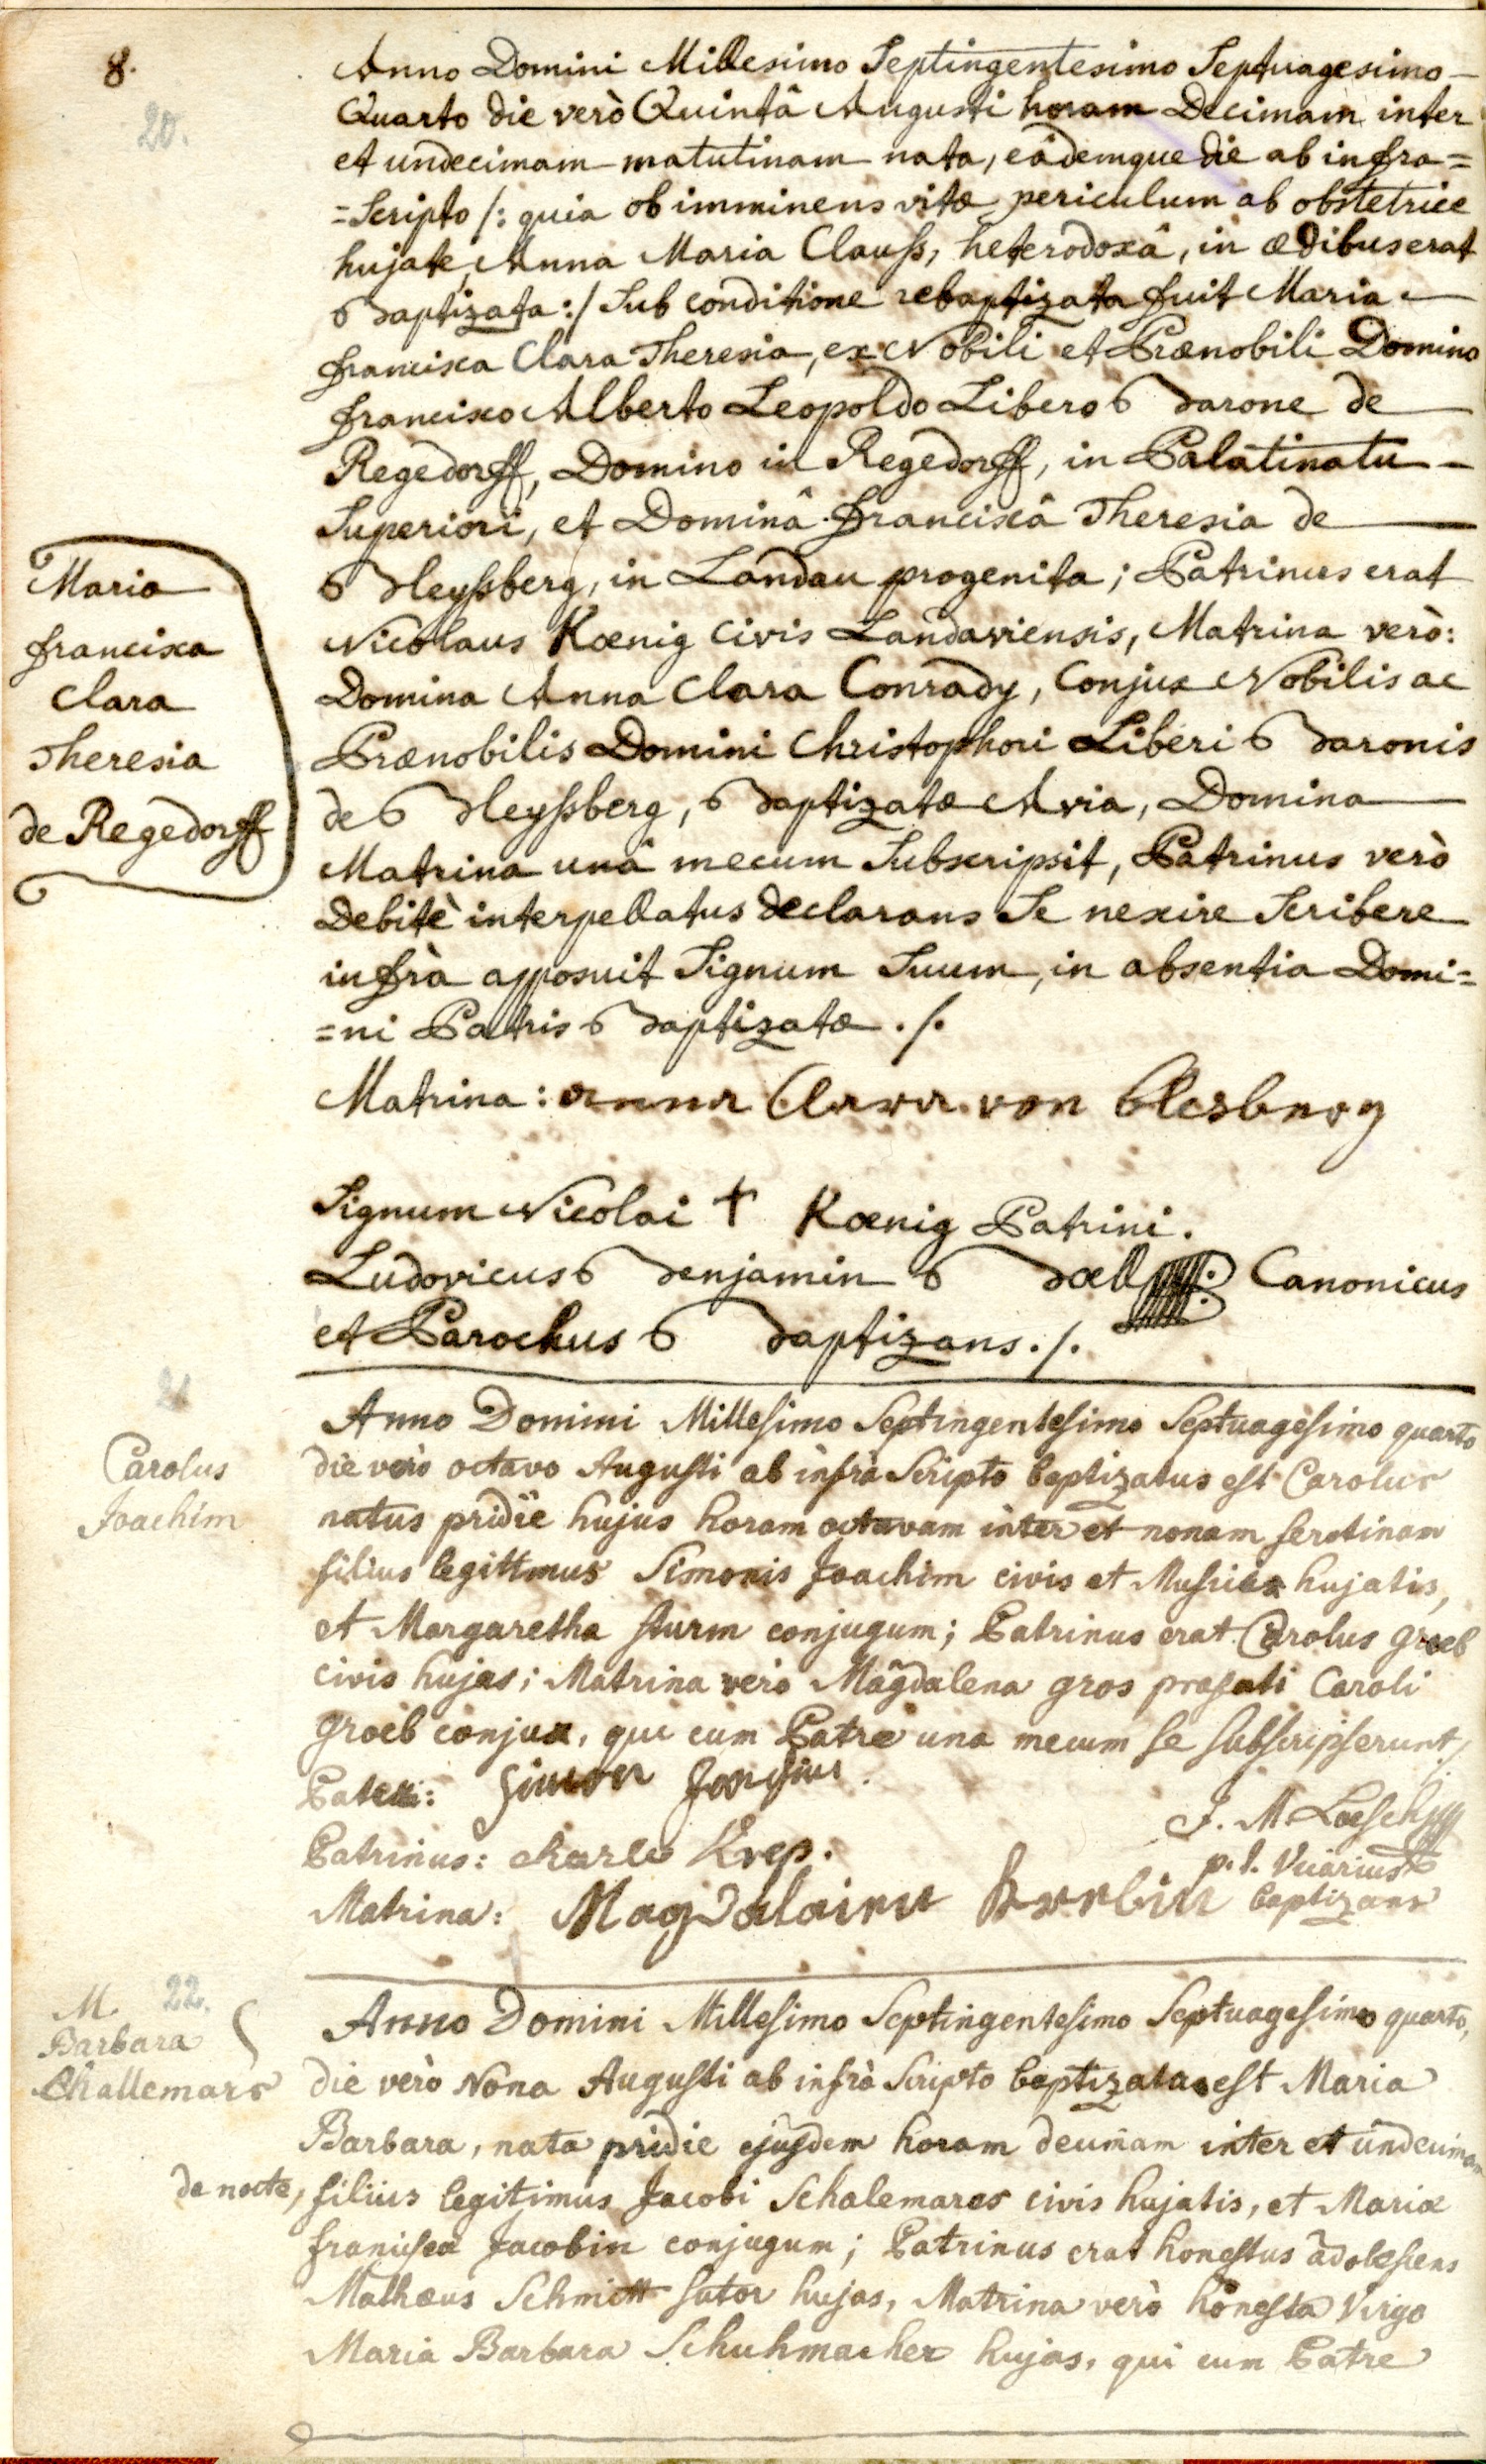 8.
20.
Anno Domini Millesimo Septingentesimo Septuagesimo
Quarto die verò Quintâ Augusti horam Decimam inter
et undecimam matutinam nata, eâdemque die ab infra=
=Scripto /: quia ob imminens vitæ periculum ab obstetrice
hujate, Anna Maria Clauß, heterodoxâ, in ædibus erat
Baptizata :/ Sub conditione rebaptizata fuit Maria
francisca Clara Theresia, ex Nobili et Prænobili Domino
francisco Alberto Leopoldo Libero Barone de
Regedorff, Domino in Regedorff, in Palatinatu
Superiori, et Dominâ franciscâ Theresia de
Bleyßberg, in Landau progenita; Patrinus erat
Nicolaus Kœnig Civis Landaviensis, Matrina verò:
Domina Anna Clara Conrady, Conjux Nobilis ac
Prænobilis Domini Christophori Liberi Baronis
de Bleyßberg, Baptizatæ Avia, Domina
Matrina unâ mecum Subscripsit, Patrinus verò
Debitè interpellatus declarans Se nescire Scribere
infrà apposuit Signum Suum, in absentia Domi=
=ni Patris Baptizatæ ./.
Maria
francisca
Clara
Theresia
de Regedorff
Matrina: anna Clara von Blesberg
Signum Nicolai + Kœnig Patrini.
Ludovicus Benjamin Bœll Canonicus
et Parochus Baptizans ./.
21
Carolus
Joachim
Anno Domini Millesimo Septingentesimo Septuagesimo quarto
die verò octavo Augusti ab infrà Scripto baptizatus est Carolus
natus pridie hujus horam octavam inter et nonam serotinam
filius legittimus Simonis Joachim civis et Musici hujatis,
et Margaretha Sturm conjugum; Patrinus erat Carolus groeb
civis hujas; Matrina verò Magdalena gros præfati Caroli
groeb conjux, qui cum Patre una mecum se subscripserunt ./.
Pater: Simon
Patrinus: Charle
Matrina: Magdalaina
J. M. Loesch
p. t. Vicarius
baptizans
22.
M.
Barbara
Challemars
Anno Domini Millesimo Septingentesimo Septuagesimo quarto,
die verò Nona Augusti ab infrà Scripto baptizata est Maria
Barbara, nata pridie ejusdem horam decimam inter et undecimam
de nocte, filius legitimus Jacobi Schalemares civis hujatis, et Mariæ
francisca Jacobin conjugum; Patrinus erat honestus adolescens
Mathæus Schmitt sutor hujas, Matrina verò honesta Virgo
Maria Barbara Schuhmacher hujas, qui cum Patre